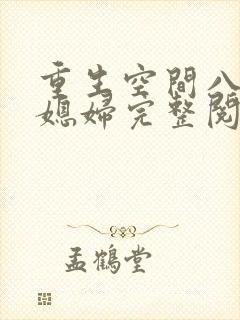 重生空間八
媳婦完整閱
孟鶴堂